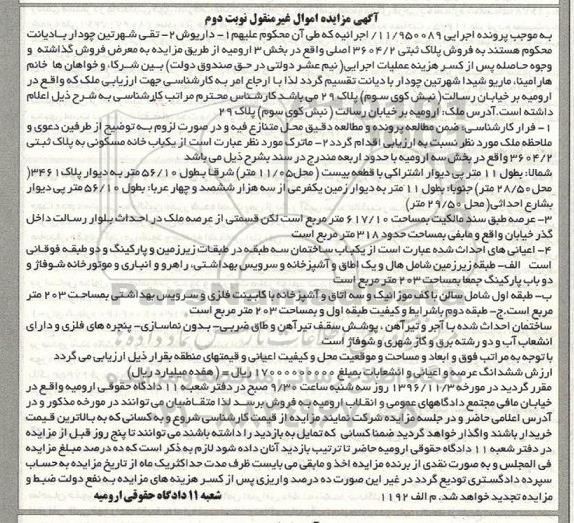 آگهی مزایده اموال غیرمنقول نوبت دوم
به موجب پرونده اجرایی 11/950089 اجرائیه که طی آن محکوم علیهم 1- داریوش 2- تقی شهرتین چودار بادیانت
محکوم هستند به فروش پلاک ثبتی 3604/2 اصلی واقع در بخش 3 ارومیه از طریق مزایده به معرض فروش گذاشته و
وجوه حاصله پس از کسر هزینه عملیات اجرایی( نیم عشر دولتی در حق صندوق دولت) بین شرکاء و خواهان ها خانم
هارامینا، ماریو شیدا شهرتین چودار با دیانت تقسیم گردد لذا با ارجاع امر به کارشناسی جهت ارزیابی ملک که واقع در
ارومیه بر خیابان رسالت( نبش کوی سوم) پلاک 29 می باشد کارشناس محترم مراتب کارشناسی به شرح ذیل اعلام
داشته است.آدرس ملک: ارومیه بر خیابان رسالت ( نبش کوی سوم) پلاک 29
1- قرار کارشناسی: ضمن مطالعه پرونده و مطالعه دقیق محل متنازع فیه و در صورت لزوم به توضیح از طرفین دعوی و
ملاحظه ملک مورد نظر نسبت به ارزیابی اقدام گردد 2- ماترک مورد نظر عبارت است از یکباب خانه مسکونی به پلاک ثبتی
3604/2 واقع در بخش سه ارومیه با حدود اربعه مندرج در سند بشرح ذیل می باشد
شمالا: بطول 11 متر پی دیوار اشتراکی با قطعه بیست ( محل 11/05 متر) شرقا بطول 56/10 متر به دیوار پلاک 3461(
محل 28/50 متر) جنوبا: بطول 11 متر به دیوار زمین یکفرعی از سه هزار ششصد و چهار غربا: بطول 56/10 متر پی دیوار
بشارع احداثی( محل 29/50 متر)
3- عرصه طبق سند مالکیت بمساحت 617/10 متر مربع است لکن قسمتی از عرصه ملک در احداث بلوار رسالت داخل
گذر خیابان واقع و مابقی بمساحت حدود 318 متر مربع است
4- اعیانی های احداث شده عبارت است از یکباب ساختمان سه طبقه در طبقات زیرزمین و پارکینگ و دو طبقه فوقانی
است الف- طبقه زیرزمین شامل هال و یک اطاق و آشپزخانه و سرویس بهداشتی، راهرو و انباری و موتورخانه شوفاژ و
دو باب پارکینگ جمعا بمساحت 203 متر مربع است
ب- طبقه اول شامل سالن با کف موزائیک و سه اتاق و آشپزخانه با کابینت فلزی و سرویس بهداشتی بمساحت 203 متر
مربع است.ج- طبقه دوم با شرایط و کیفیت طبقه اول و بمساحت 203 متر مربع
ساختمان احداث شده با آجر و تیرآهن ، پوشش سقف تیرآهن و طاق ضربی- بدون نماسازی- پنجره های فلزی و دارای
انشعاب آب و دو رشته برق و گاز شهری و شوفاژ است
با توجه به مراتب فوق و ابعاد و مساحت و موقعیت محل و کیفیت اعیانی و قیمتهای منطقه بقرار ذیل ارزیابی می گردد
ارزش ششدانگ عرصه و اعیانی و انشعابات بمبلغ 17000000000 ریال- ( هفده میلیارد ریال)
مقرر گردید در مورخه 1396/11/3 روز سه شنبه ساعت 9/30 صبح در دفتر شعبه 11 دادگاه حقوقی ارومیه واقع در
خیابان مافی مجتمع دادگاههای عمومی و انقلاب ارومیه به فروش برسد لذا متقاضیان می توانند در مورخه مذکور و در
آدرس اعلامی حاضر و در جلسه مزایده شرکت نمایند مزایده از قیمت کارشناسی شروع و به کسانی که به بالاترین قیمت
خریدار باشند واگذار خواهد گردید ضمنا کسانی که تمایل به بازدید را داشته باشند می توانند تا پنج روز قبل از مزایده
در دفتر شعبه 11 دادگاه حقوقی ارومیه حاضر تا ترتیب بازدید آنان داده شود لازم به ذکر است که ده درصد مبلغ مزایده
فی المجلس و به صورت نقدی از برنده مزایده اخذ و مابقی می بایست ظرف مدت حداکثر یک ماه از تاریخ مزایده به حساب
سپرده دادگستری تودیع گردد در غیر این صورت ده درصد واریزی پس از کسر هزینه های مزایده به نفع دولت ضبط و
مزایده تجدید خواهد شد. م الف 1192 شعبه 11 دادگاه حقوقی ارومیه